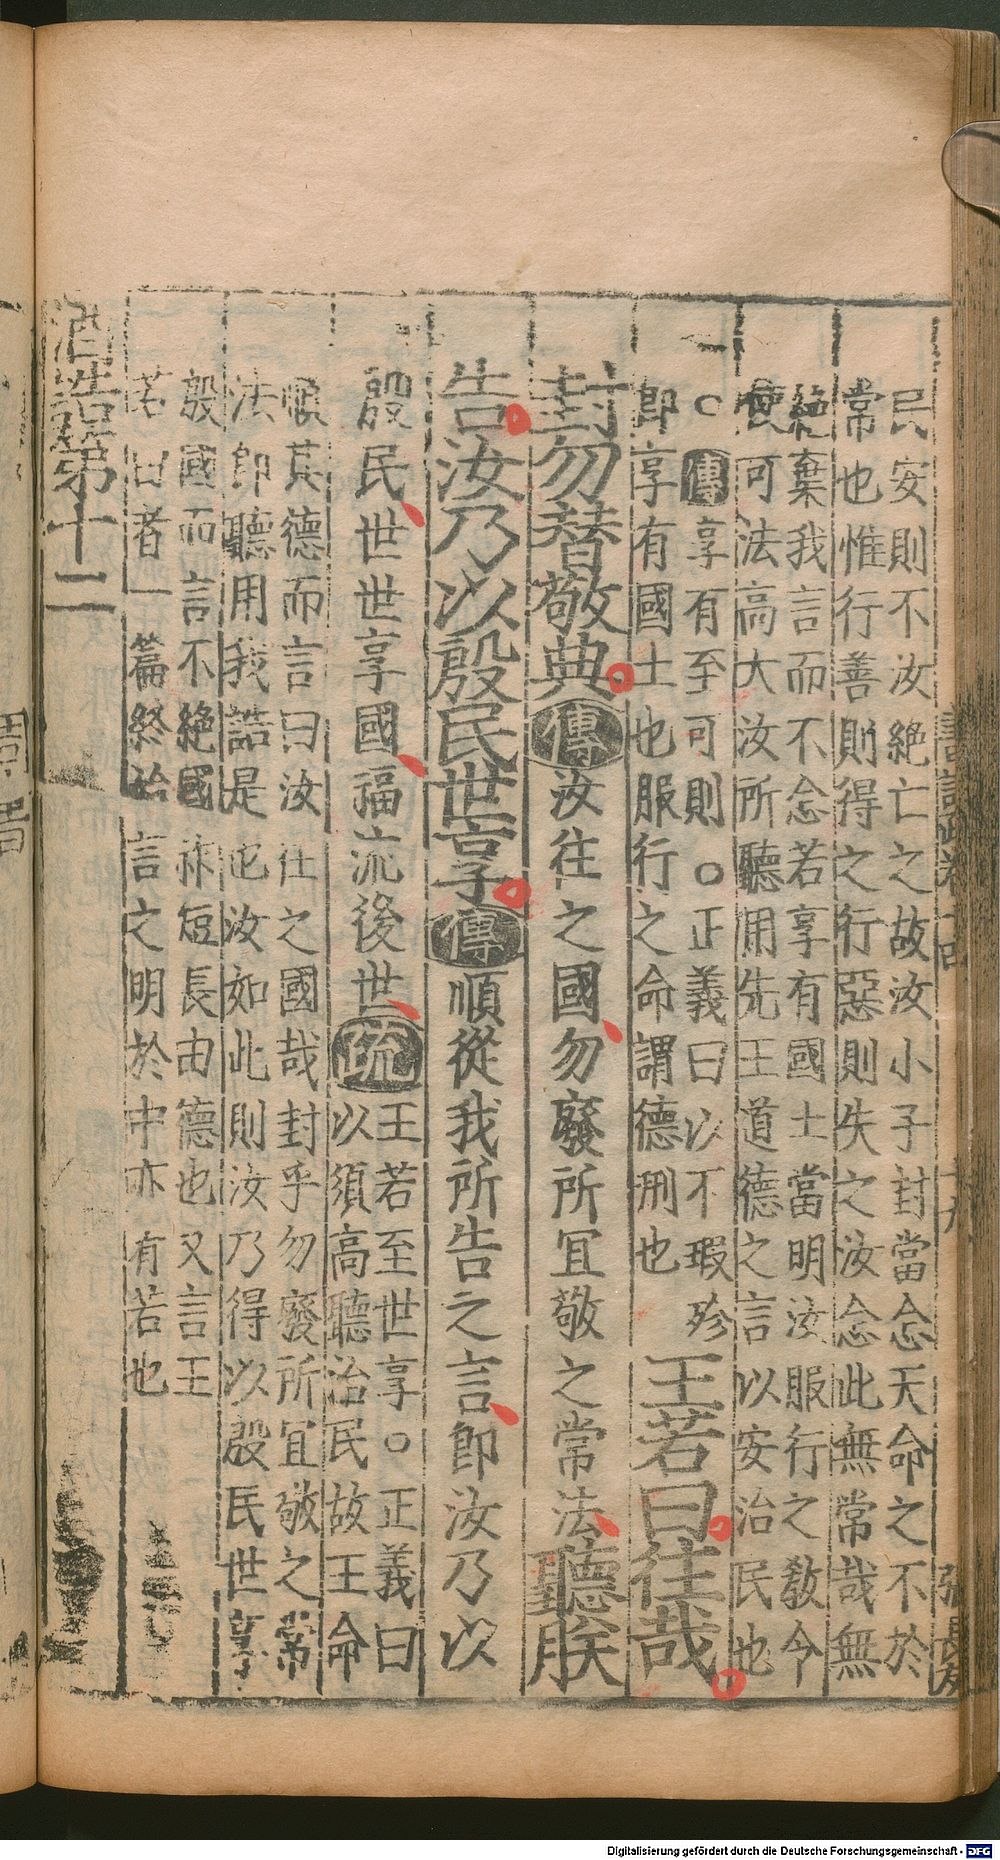 民安則不汝絶亡之故汝小子封當念天命之不於
常也惟行善則得之行惡則失之汝念此無常哉無
絶棄我言而不念若享有國土當明汝服行之教令
使可法高大汝所聽用先王道德之言以安治民也
○傳享有至可則○正義曰以不瑕殄
即享有國土也服行之命謂德刑也
王若曰往哉
封勿替敬典傳汝往之國勿廢所宜敬之常法聽朕
告汝乃以殷民世享傳順從我所告之言即汝乃以
殷民世世享國福流後世疏
王若至世享○正義曰
以須高聽治民故王命
順其德而言曰汝往之國哉封乎勿廢所宜敬之常
法即聽用我誥是也汝如此則汝乃得以殷民世享
殷國而言不絶國祚短長由德也又言王
若曰者一篇終始言之明於中亦有若也
酒誥第十二
Digitalisierung gefördert durch die Deutsche Forschungsgemeinschaft - DFG